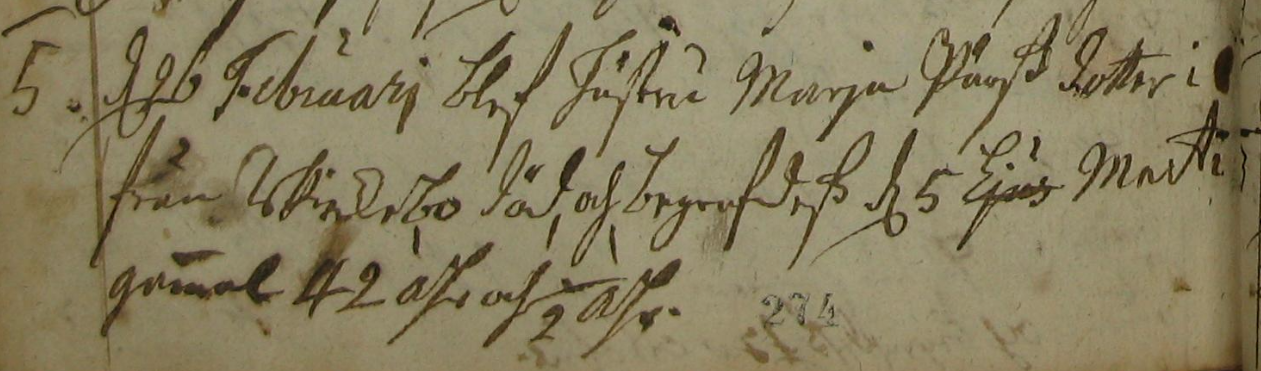 5. d 26 Februarj blef hustru Marja Pärs dotter i
från bo död, och begrafdes d 5 Ejus Martii
gam̄al 42 åhr och 1/2 åhr.
274